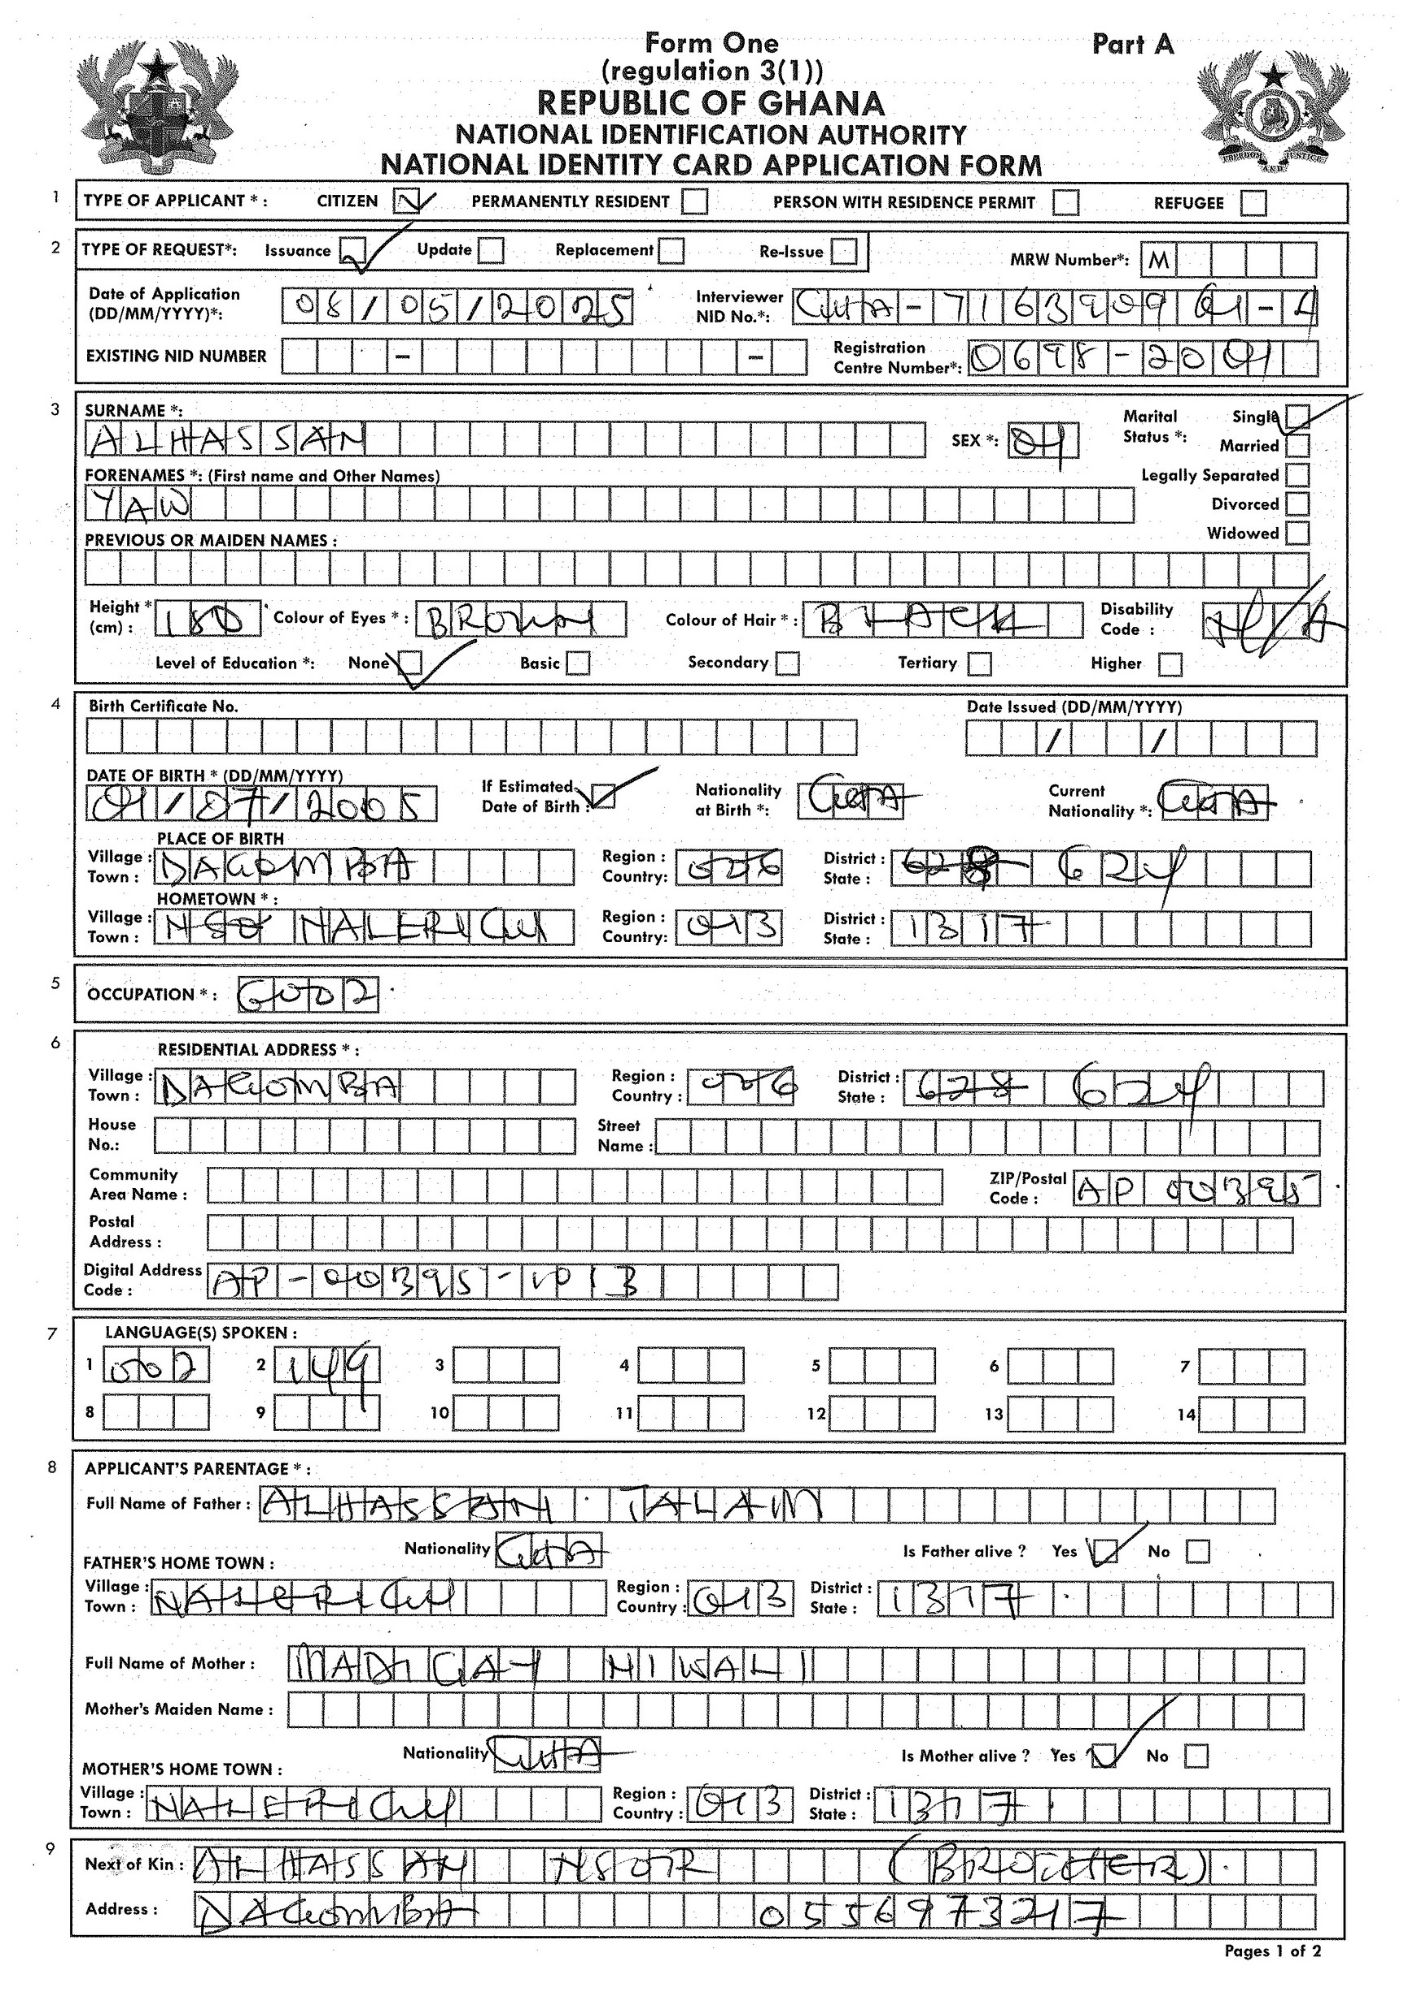 Form One
Part A
(regulation 3(1))
REPUBLIC OF GHANA
NATIONAL IDENTIFICATION AUTHORITY
NATIONAL IDENTITY CARD APPLICATION FORM
FREEDOM AND JUSTICE
1 TYPE OF APPLICANT * : CITIZEN PERMANENTLY RESIDENT PERSON WITH RESIDENCE PERMIT REFUGEE
2 TYPE OF REQUEST*: Issuance Update Replacement Re-Issue MRW Number*: M
Date of Application (DD/MM/YYYY)*: 08/05/2025 Interviewer NID No.*: GHA-716390901-4
EXISTING NID NUMBER - - Registration Centre Number*: 0698-2001
3 SURNAME *: ALHASSAN SEX *: 01 Marital Status *: Single
Married
FORENAMES *: (First name and Other Names) Legally Separated
YAW Divorced
PREVIOUS OR MAIDEN NAMES : Widowed
Height * (cm) : 180 Colour of Eyes * : BROWN Colour of Hair * : BLACK Disability Code : N/A
Level of Education *: None Basic Secondary Tertiary Higher
4 Birth Certificate No. Date Issued (DD/MM/YYYY)
/ /
DATE OF BIRTH * (DD/MM/YYYY) If Estimated Date of Birth : Nationality at Birth *: GHA Current Nationality *: GHA
01/07/2005
PLACE OF BIRTH
Village : Town : DAGOMBA Region : Country: 006 District : State : 628 624
HOMETOWN * :
Village : Town : NALERIGU Region : Country: 013 District : State : 1317
5 OCCUPATION * : G002
6 RESIDENTIAL ADDRESS * :
Village : Town : DAGOMBA Region : Country : 006 District : State : 628 624
House No.: Street Name :
Community Area Name : ZIP/Postal Code : AP 00395
Postal Address :
Digital Address Code : AP-00395-1013
7 LANGUAGE(S) SPOKEN :
1 002 2 149 3 4 5 6 7
8 9 10 11 12 13 14
8 APPLICANT'S PARENTAGE * :
Full Name of Father : ALHASSAN TALAM
Nationality GHA Is Father alive ? Yes No
FATHER'S HOME TOWN :
Village : Town : NALERIGU Region : Country : 013 District : State : 1317
Full Name of Mother : NIWALI
Mother's Maiden Name :
Nationality GHA Is Mother alive ? Yes No
MOTHER'S HOME TOWN :
Village : Town : NALERIGU Region : Country : 013 District : State : 1317
9 Next of Kin : ALHASSAN NSOR (BROTHER)
Address : DAGOMBA 0556973217
Pages 1 of 2